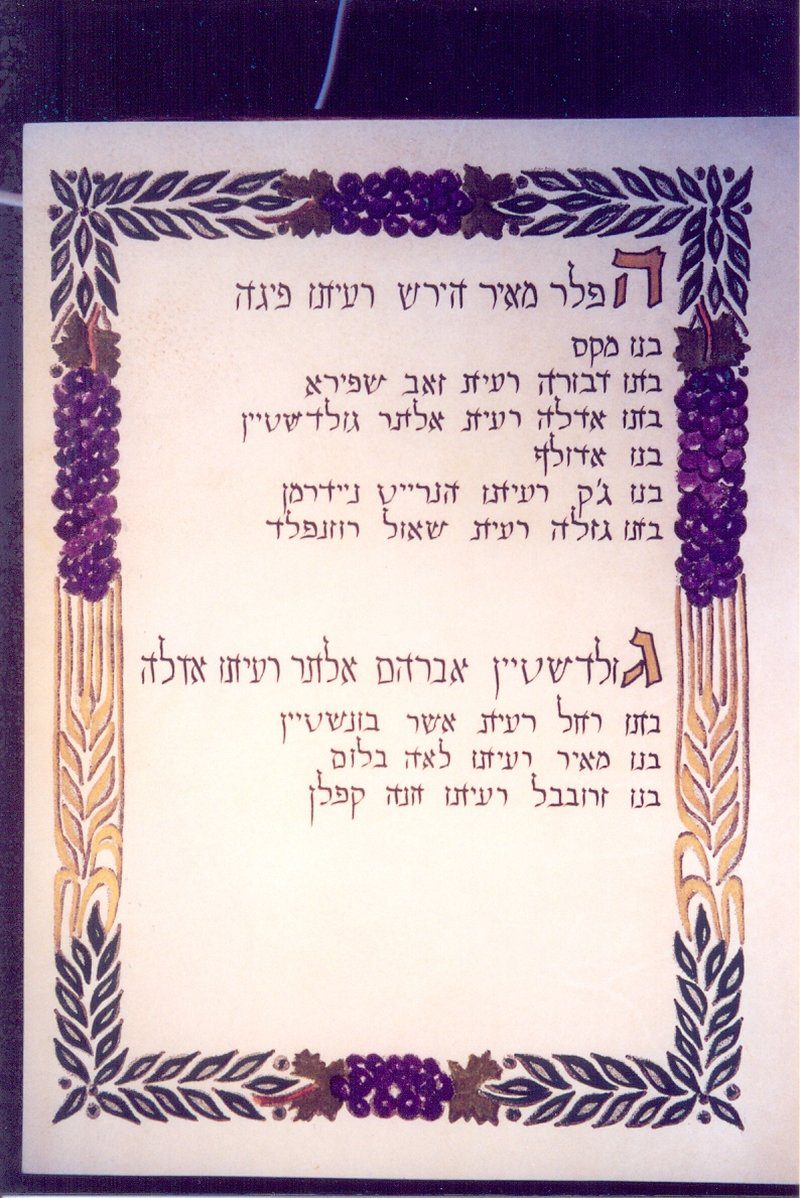 הפלר מאיר הירש רעיתו פיגה
בנו מקס
בתו דבורה רעית זאב שפירא
בתו אדלה רעית אלתר גולדשטיין
בנו אדולף
בנו ג'ק רעיתו הנרייט ניידרמן
בתו גזלה רעית שאול רוזנפלד
גולדשטיין אברהם אלתר רעיתו אדלה
בתו רחל רעית אשר בונשטיין
בנו מאיר רעיתו לאה בלום
בנו זרובבל רעיתו חנה קפלן